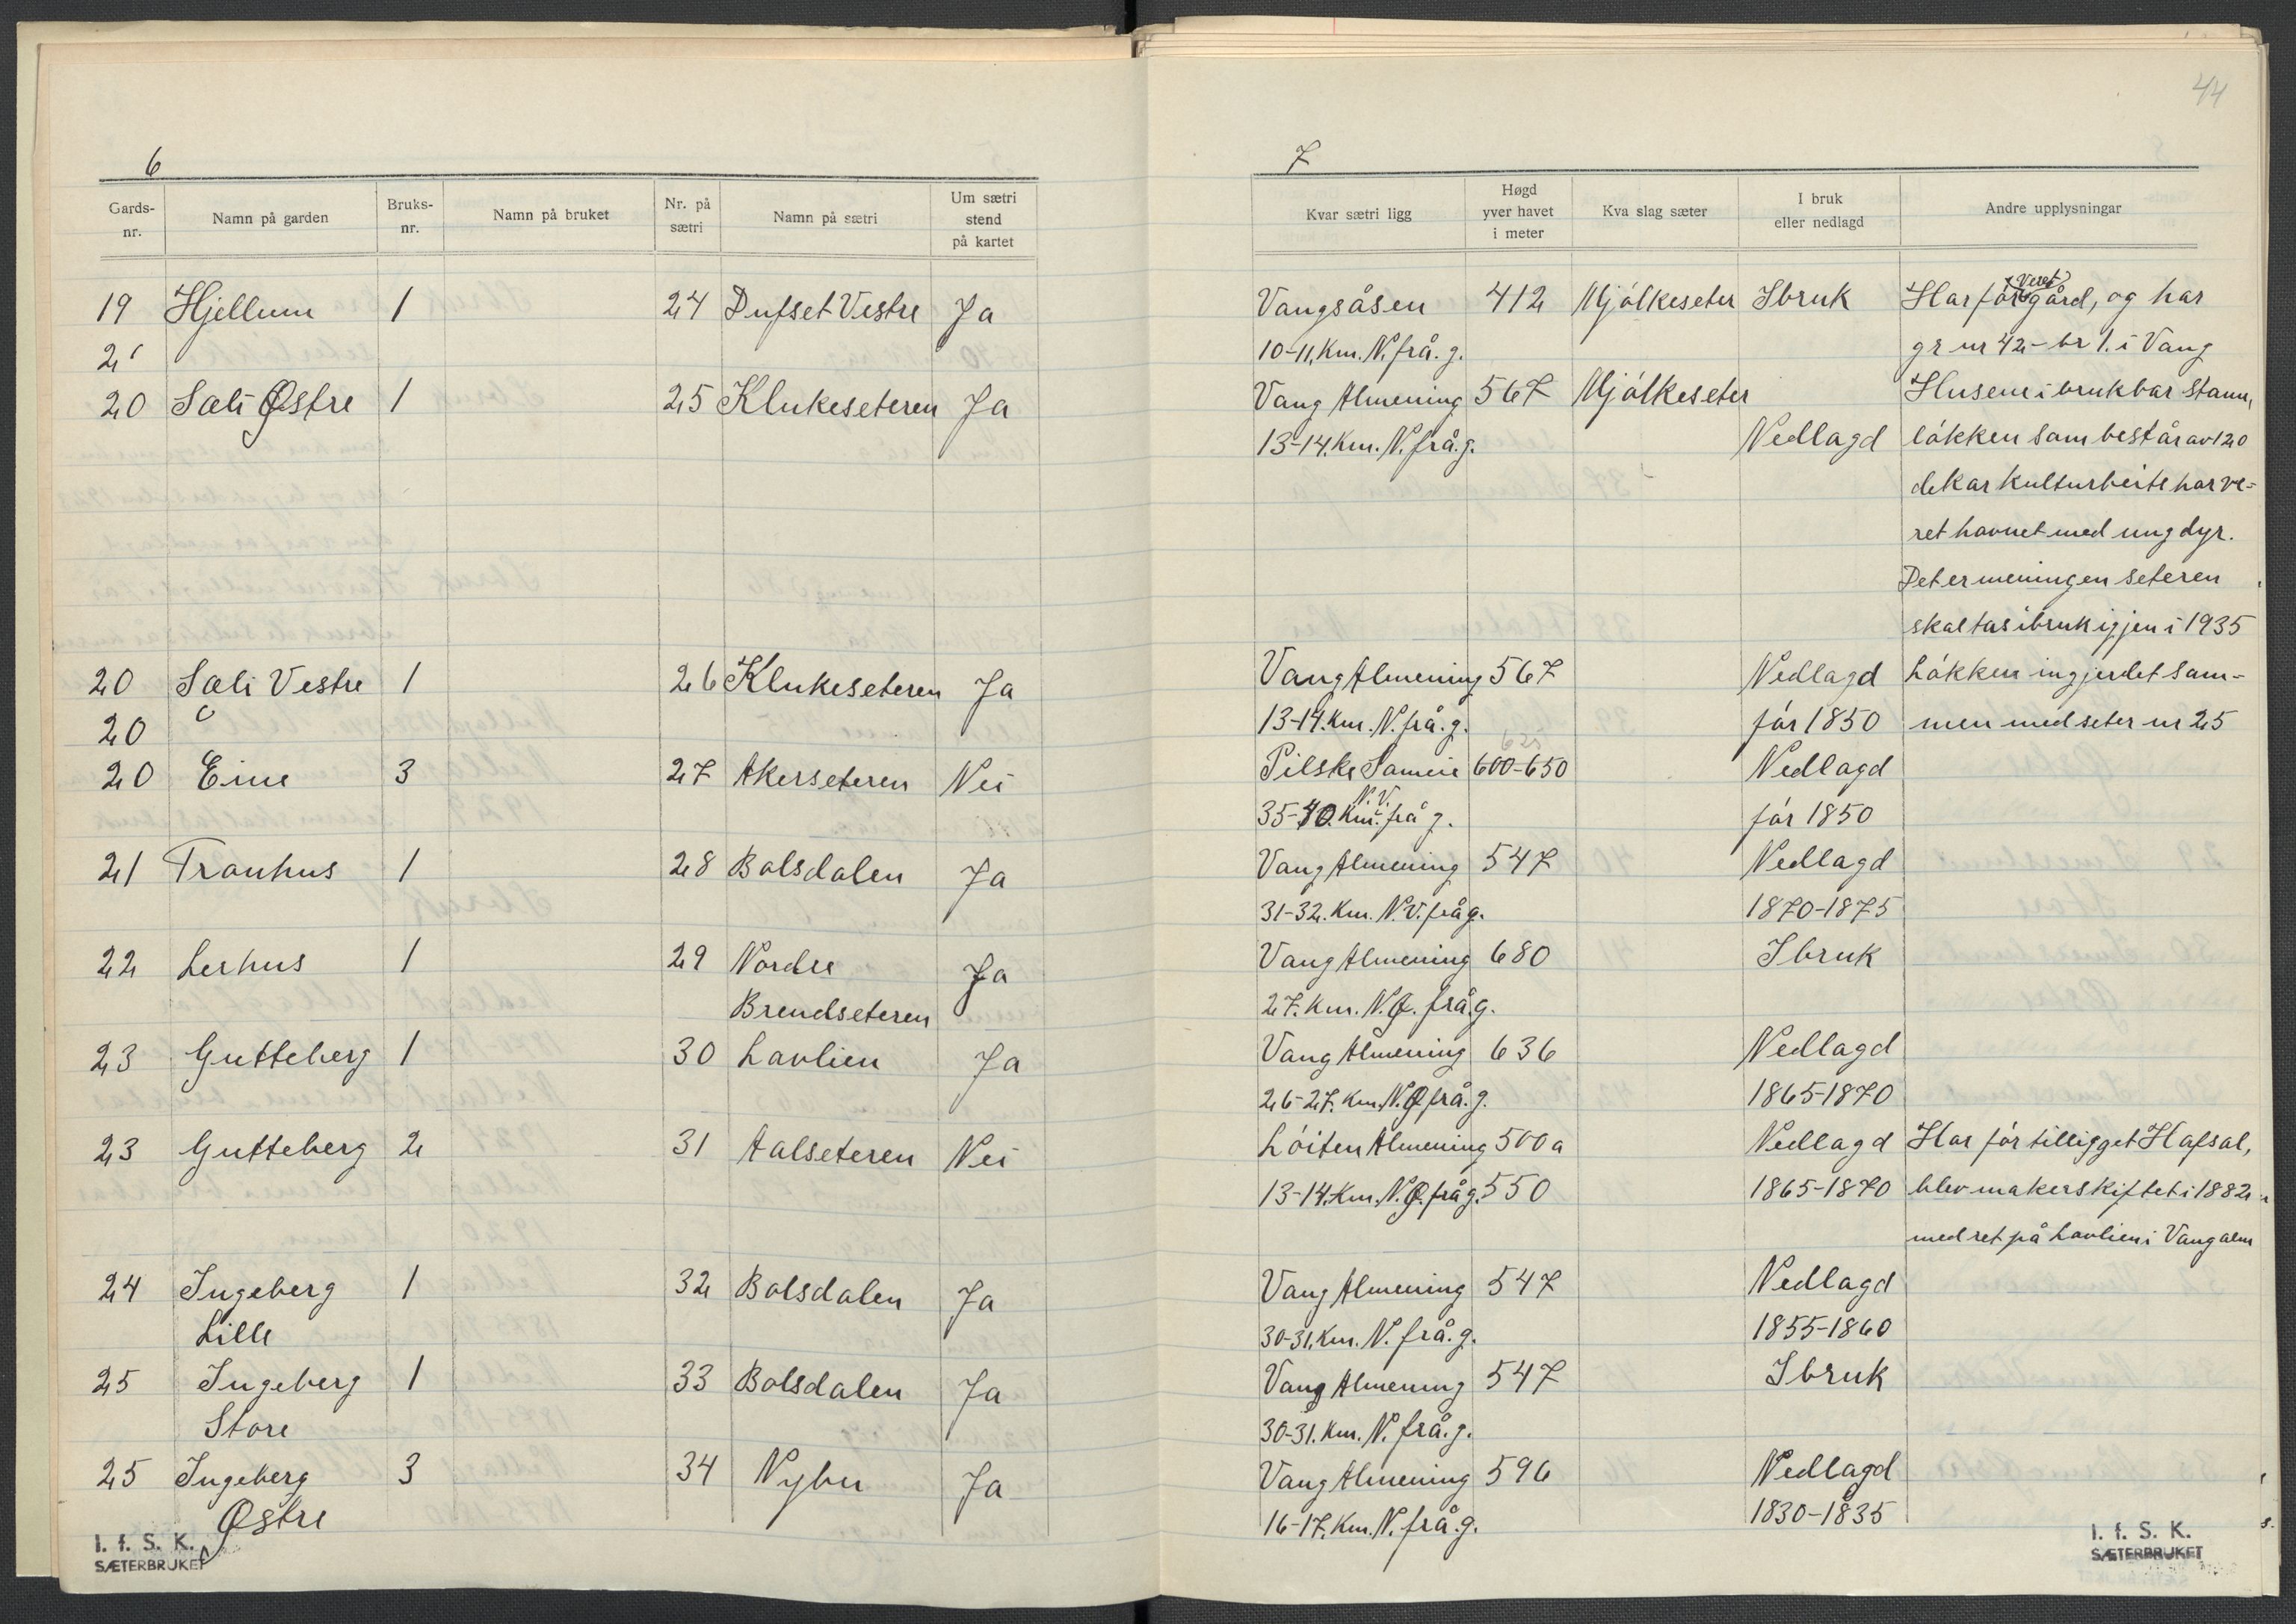 44
6
Gards-nr. Namn på garden Bruks-nr. Namn på bruket Nr. på sætri Namn på sætri Um sætri stend på kartet
19 Hjellum 1 24 Dufset Vestre Ja
2
20 Sæli Østre 1 25 Klukeseteren Ja
20 Sæli Vestre 1 26 Klukeseteren Ja
20
20 Eine 3 27 Akerseteren Nei
21 Tronhus 1 28 Bolsdalen Ja
22 Lerhus 1 29 Nordre Ja
Brendseteren
23 Gutteberg 1 30 Lavlien Ja
23 Gutteberg 2 31 Aalseteren Nei
24 Ingeberg 1 32 Bolsdalen Ja
Lille
25 Ingeberg 1 33 Bolsdalen Ja
Store
25 Ingeberg 3 34 Nybu Ja
Østre
I. f. S. K.
SÆTERBRUKET
7
Kvar sætri ligg Høgd yver havet i meter Kva slag sæter I bruk eller nedlagd Andre upplysningar
Veret
Vangsåsen 412 Mjólkeseter Ibruk Har fór gård, og har
10-11. Km. N. frå. g. gr nr 42 - br 1. i Vang
Vang Almening 567 Mjólkeseter Husene i brukbar stann,
13-14. Km. N. frå. g. Nedlagd lókken som består av 120
dekar kulturbeite har ve-
ret havnet med ungdyr.
Det er meningen seteren
skal tas ibruk igjen i 1935
Vang Almening 567 Nedlagd Lókken ingjerdet sam-
13-14. Km. N. frå. g. fór 1850 men med seter nr 25
625
Pilske Sameie 600-650 Nedlagd
35-40. Km. N.V. frå g. fór 1850
Vang Almening 547 Nedlagd
31-32. Km. N.V. frå g. 1870-1875
Vang Almening 680 Ibruk
27. Km. N.Ø. frå g.
Vang Almening 636 Nedlagd
26-27. Km. N.Ø frå. g. 1865-1870
Lóiten Almening 500 a Nedlagd Har fór tilligget Hafsal,
13-14. Km. N.Ø. frå g. 550 1865-1870 blev makerskiftet i 1882
med ret på Lavlien i Vang alm
Vang Almening 547 Nedlagd
30-31. Km. N. frå. g. 1855-1860
Vang Almening 547 Ibruk
30-31. Km. N. frå. g.
Vang Almening 596 Nedlagd
16-17. Km. N. frå. g. 1830-1835
I. f. S. K.
SÆTERBRUKET